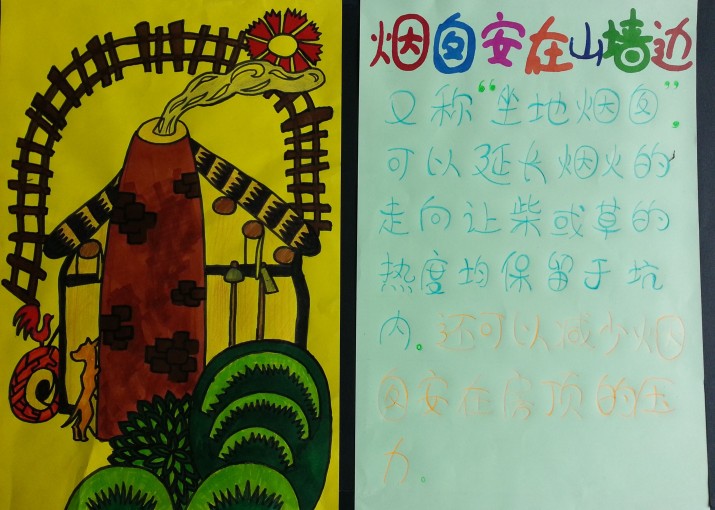 烟囱安在山墙边
又称“坐地烟囱”，
可以延长烟火的
走向让柴或草的
热度均保留于坑
内。还可以减少烟囱
囱安在房顶的压
力。